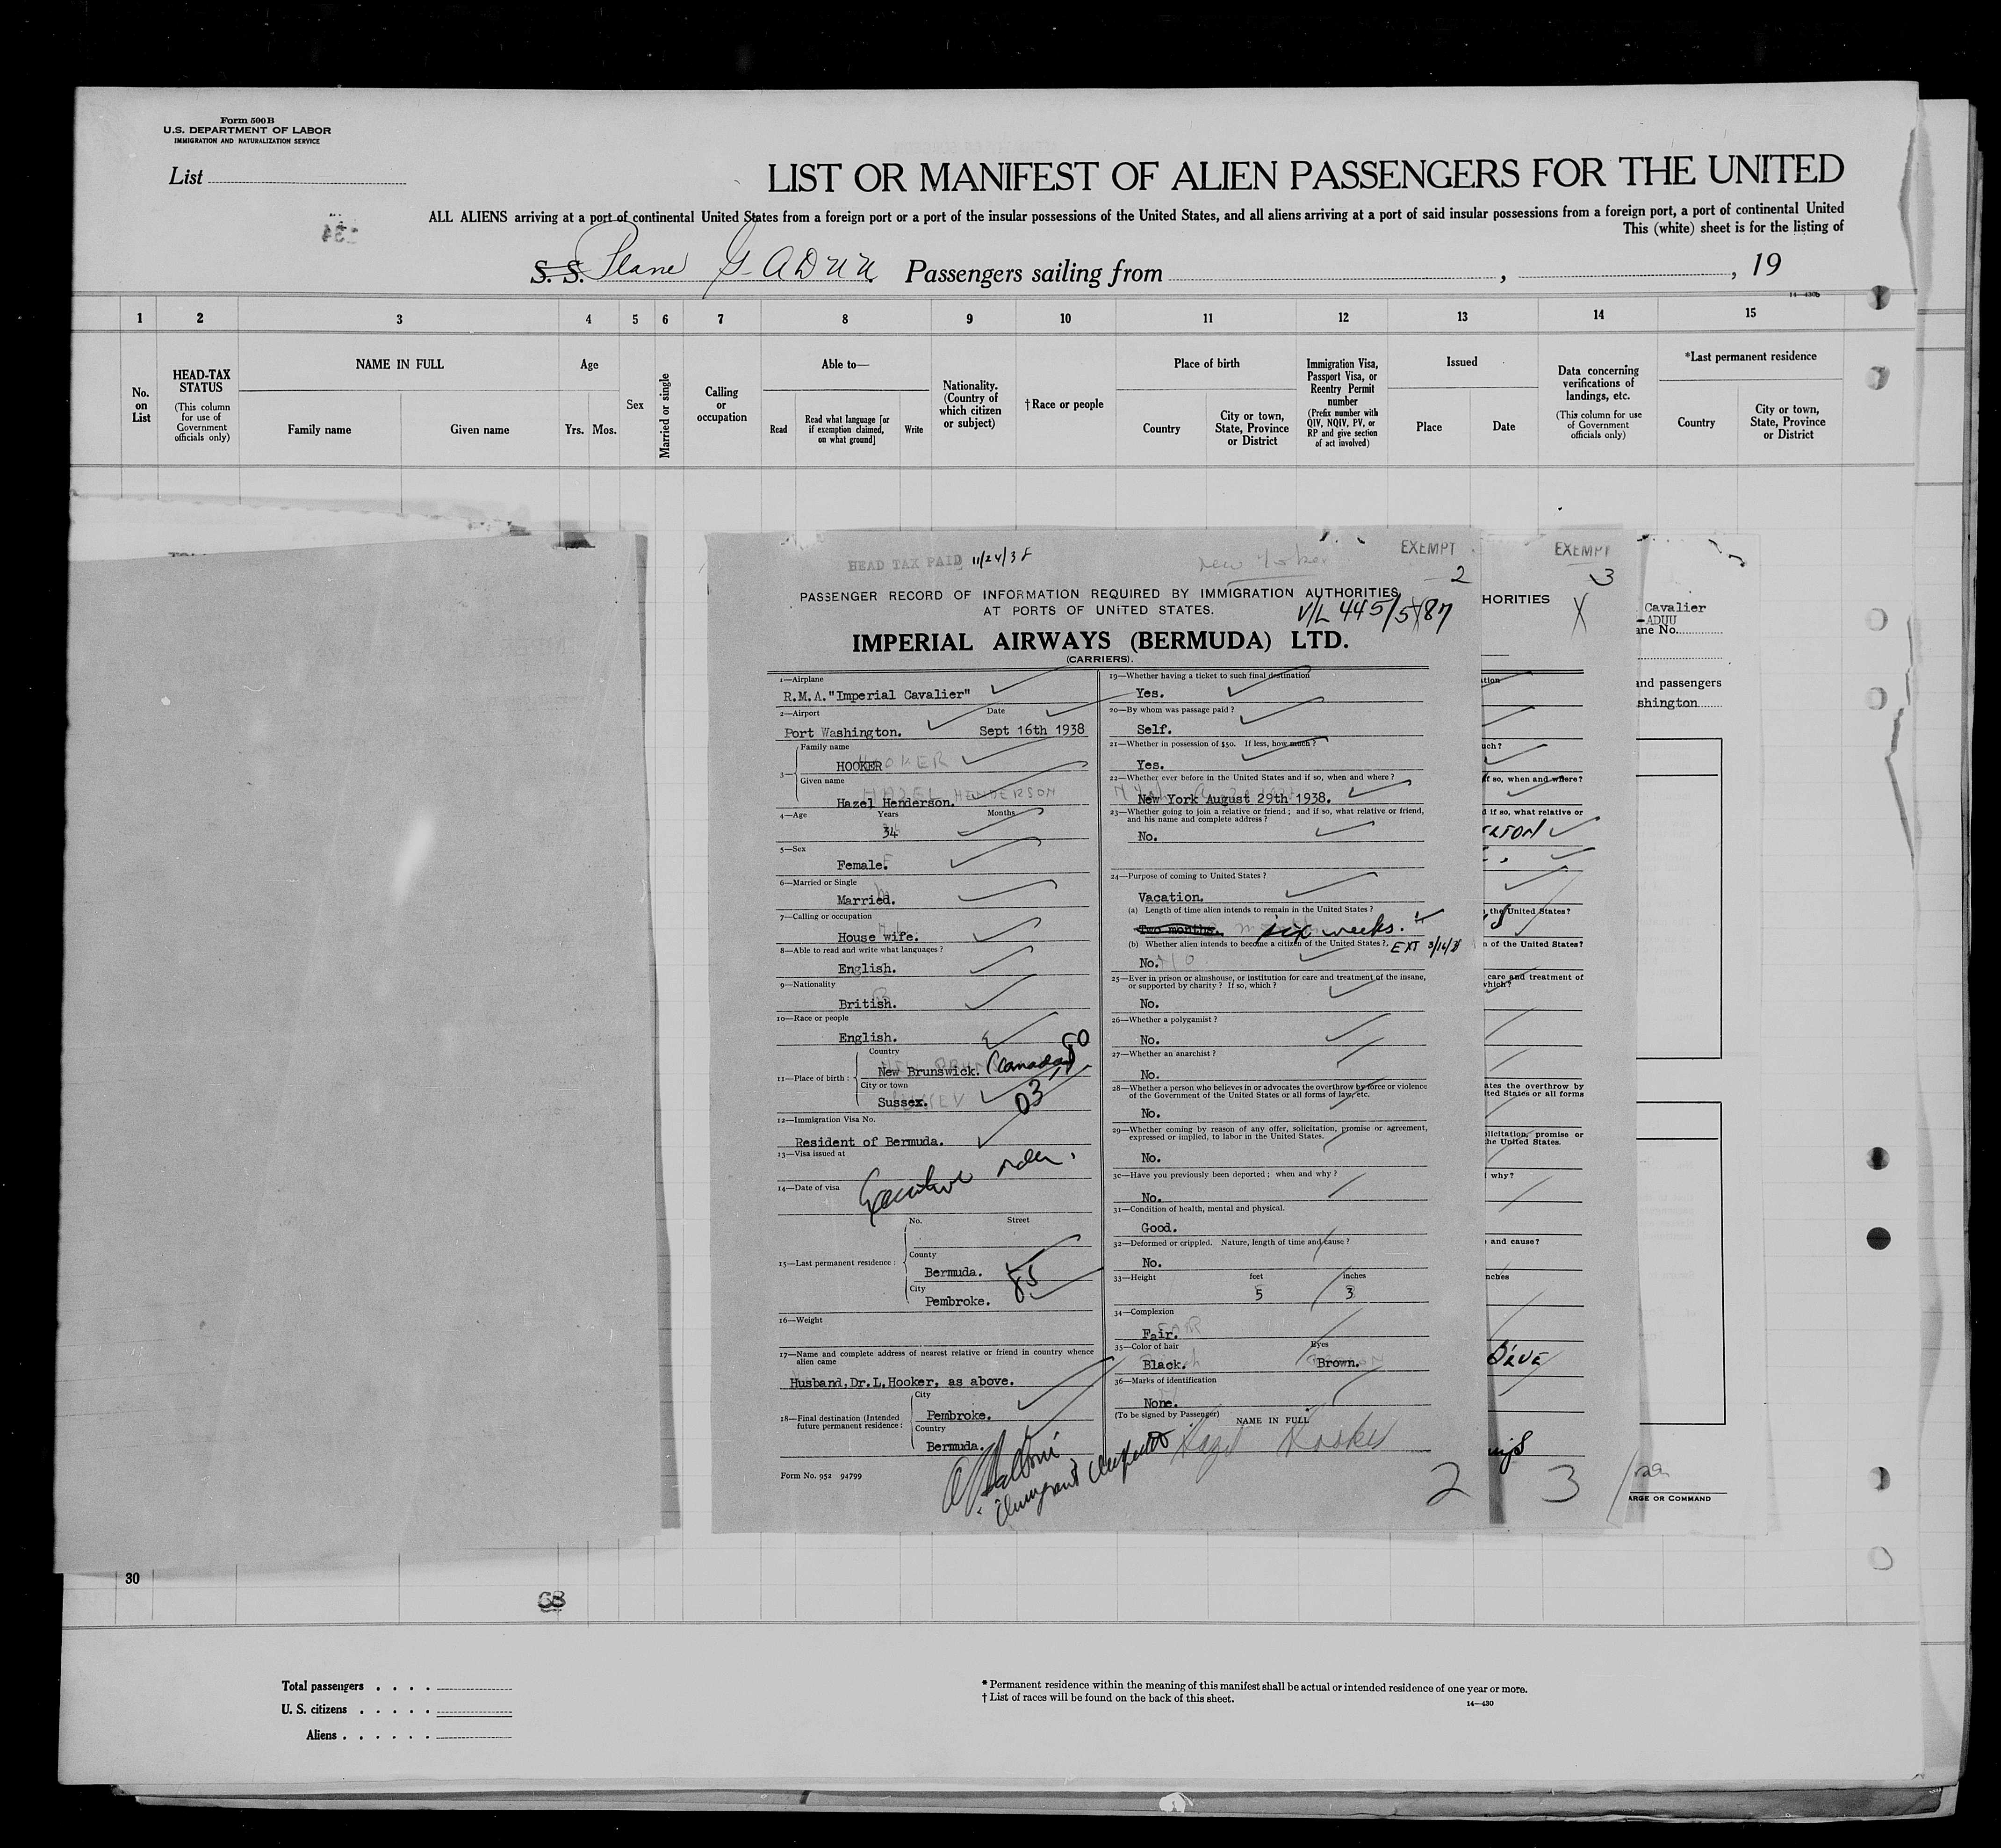 Form 500 B
U.S. DEPARTMENT OF LABOR
IMMIGRATION AND NATURALIZATION SERVICE
List
LIST OR MANIFEST OF ALIEN PASSENGERS FOR THE UNITED
ALL ALIENS arriving at a port of continental United States from a foreign port or a port of the insular possessions of the United States, and all aliens arriving at a port of said insular possessions from a foreign port, a port of continental United
This (white) sheet is for the listing of
S. S. Plane G ADUU Passengers sailing from , , 19
14—430b
1 2 3 4 5 6 7 8 9 10 11 12 13 14 15
No. on List
HEAD-TAX STATUS (This column for use of Government officials only)
NAME IN FULL
Family name Given name
Age
Yrs. Mos.
Sex
Married or single
Calling or occupation
Able to—
Read
Read what language [or if exemption claimed, on what ground]
Write
Nationality. (Country of which citizen or subject)
†Race or people
Place of birth
Country
City or town, State, Province or District
Immigration Visa, Passport Visa, or Reentry Permit number (Prefix number with QIV, NQIV, PV, or RP and give section of act involved)
Issued
Place Date
Data concerning verifications of landings, etc. (This column for use of Government officials only)
*Last permanent residence
Country
City or town, State, Province or District
HEAD TAX PAID 11/24/38
New Yorker
EXEMPT
2
PASSENGER RECORD OF INFORMATION REQUIRED BY IMMIGRATION AUTHORITIES
AT PORTS OF UNITED STATES.
V/L 445/5187
IMPERIAL AIRWAYS (BERMUDA) LTD.
(CARRIERS).
1—Airplane
R.M.A. "Imperial Cavalier"
2—Airport Date
Port Washington. Sept 16th 1938
3— Family name
HOOKER HOOKER
Given name
Hazel Henderson. HAZEL HENDERSON
4—Age Years Months
34
5—Sex
Female.
6—Married or Single
Married.
7—Calling or occupation
House wife.
8—Able to read and write what languages ?
English.
9—Nationality
British.
10—Race or people
English.
11—Place of birth :
Country
New Brunswick. (Canada)
City or town
Sussex.
03
12—Immigration Visa No.
Resident of Bermuda.
13—Visa issued at
Executive order.
14—Date of visa
15—Last permanent residence :
No. Street
County
Bermuda.
85
City
Pembroke.
16—Weight
17—Name and complete address of nearest relative or friend in country whence alien came
Husband, Dr. L. Hooker, as above.
18—Final destination (Intended future permanent residence :
City
Pembroke.
Country
Bermuda.
Form No. 952 94799
19—Whether having a ticket to such final destination
Yes.
20—By whom was passage paid ?
Self.
21—Whether in possession of $50. If less, how much ?
Yes.
22—Whether ever before in the United States and if so, when and where ?
New York August 29th 1938.
23—Whether going to join a relative or friend ; and if so, what relative or friend, and his name and complete address ?
No.
24—Purpose of coming to United States ?
Vacation.
(a) Length of time alien intends to remain in the United States ?
Two months. six weeks.
(b) Whether alien intends to become a citizen of the United States ?
EXT 3/16/38
No. No
25—Ever in prison or almshouse, or institution for care and treatment of the insane, or supported by charity ? If so, which ?
No.
26—Whether a polygamist ?
No.
27—Whether an anarchist ?
No.
28—Whether a person who believes in or advocates the overthrow by force or violence of the Government of the United States or all forms of law, etc.
No.
29—Whether coming by reason of any offer, solicitation, promise or agreement, expressed or implied, to labor in the United States.
No.
30—Have you previously been deported ; when and why ?
No.
31—Condition of health, mental and physical.
Good.
32—Deformed or crippled. Nature, length of time and cause ?
No.
33—Height feet inches
5 3
34—Complexion
Fair. FAIR
35—Color of hair Eyes
Black. Brown.
36—Marks of identification
None.
(To be signed by Passenger) NAME IN FULL
Hazel Hooker
Immigrant Inspector
2
EXEMPT
3
HORITIES
X
if so, when and where?
if so, what relative or
the United States?
n of the United States?
care and treatment of
which?
ates the overthrow by
ited States or all forms
olicitation, promise or
the United States.
why?
and cause?
nches
3
Cavalier
-ADUU
ane No.
and passengers
shington
ARGE OR COMMAND
30
68
Total passengers . . . .
U. S. citizens . . . . .
Aliens . . . . . .
* Permanent residence within the meaning of this manifest shall be actual or intended residence of one year or more.
† List of races will be found on the back of this sheet.
14—430